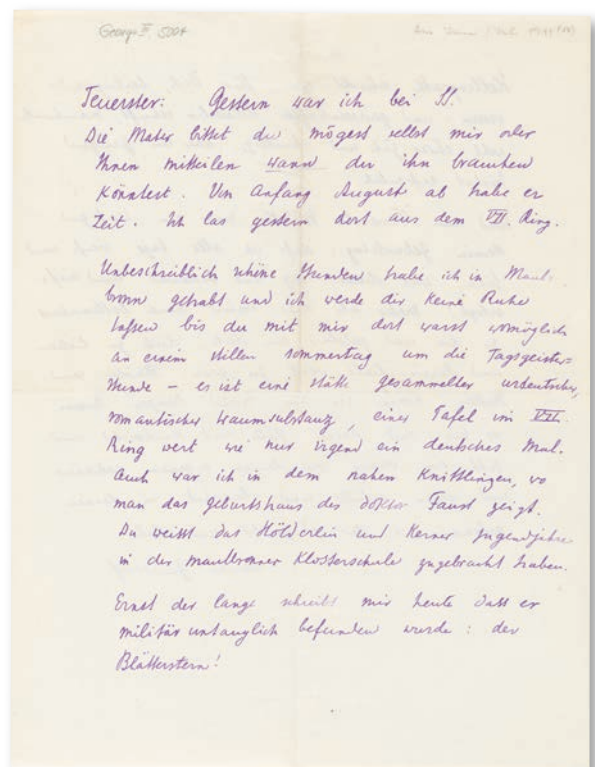 George III, 5004
Teuerster: Gestern war ich bei JJ.
Die Mater bittet du mögest selbst mir oder
Ihnen mitteilen wann du ihn brauchen
könntest. Von Anfang August ab habe er
Zeit. Ich las gestern dort aus dem VII. Ring.
Unbeschreiblich schöne Stunden habe ich in Maul-
bronn gehabt und ich werde dir keine Ruhe
lassen bis du mit mir dort warst womöglich
an einem stillen sommertag um die Tagsgeister-
stunde – es ist eine stätte gesammelter urdeutscher,
romantischer traumsubstanz, einer Tafel im VII.
Ring wert wie nur irgend ein deutsches Mal.
Auch war ich in dem nahen Knittlingen, wo
man das geburtshaus des doktor Faust zeigt.
Du weisst das Hölderlin und Kerner jugendjahre
in der maulbronner Klosterschule zugebracht haben.
Ernst der lange schreibt mir heute dass er
militäruntauglich befunden wurde: der
Blätterstern!